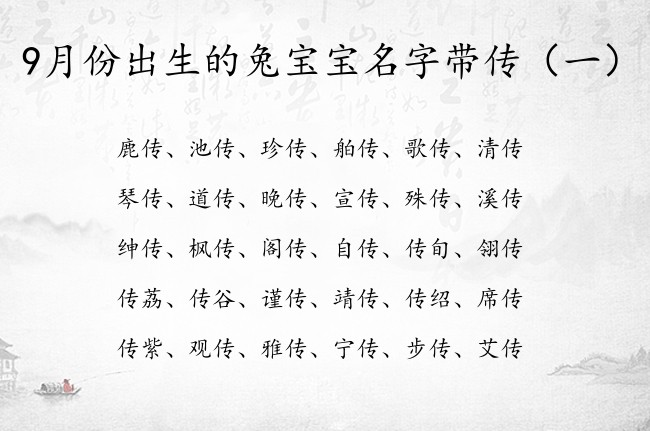 9月份出生的兔宝宝名字带传（一）
鹿传、池传、珍传、舶传、歌传、清传
琴传、道传、晚传、宣传、殊传、溪传
绅传、枫传、阁传、自传、传旬、翎传
传荔、传谷、谨传、靖传、传绍、席传
传紫、观传、雅传、宁传、步传、艾传